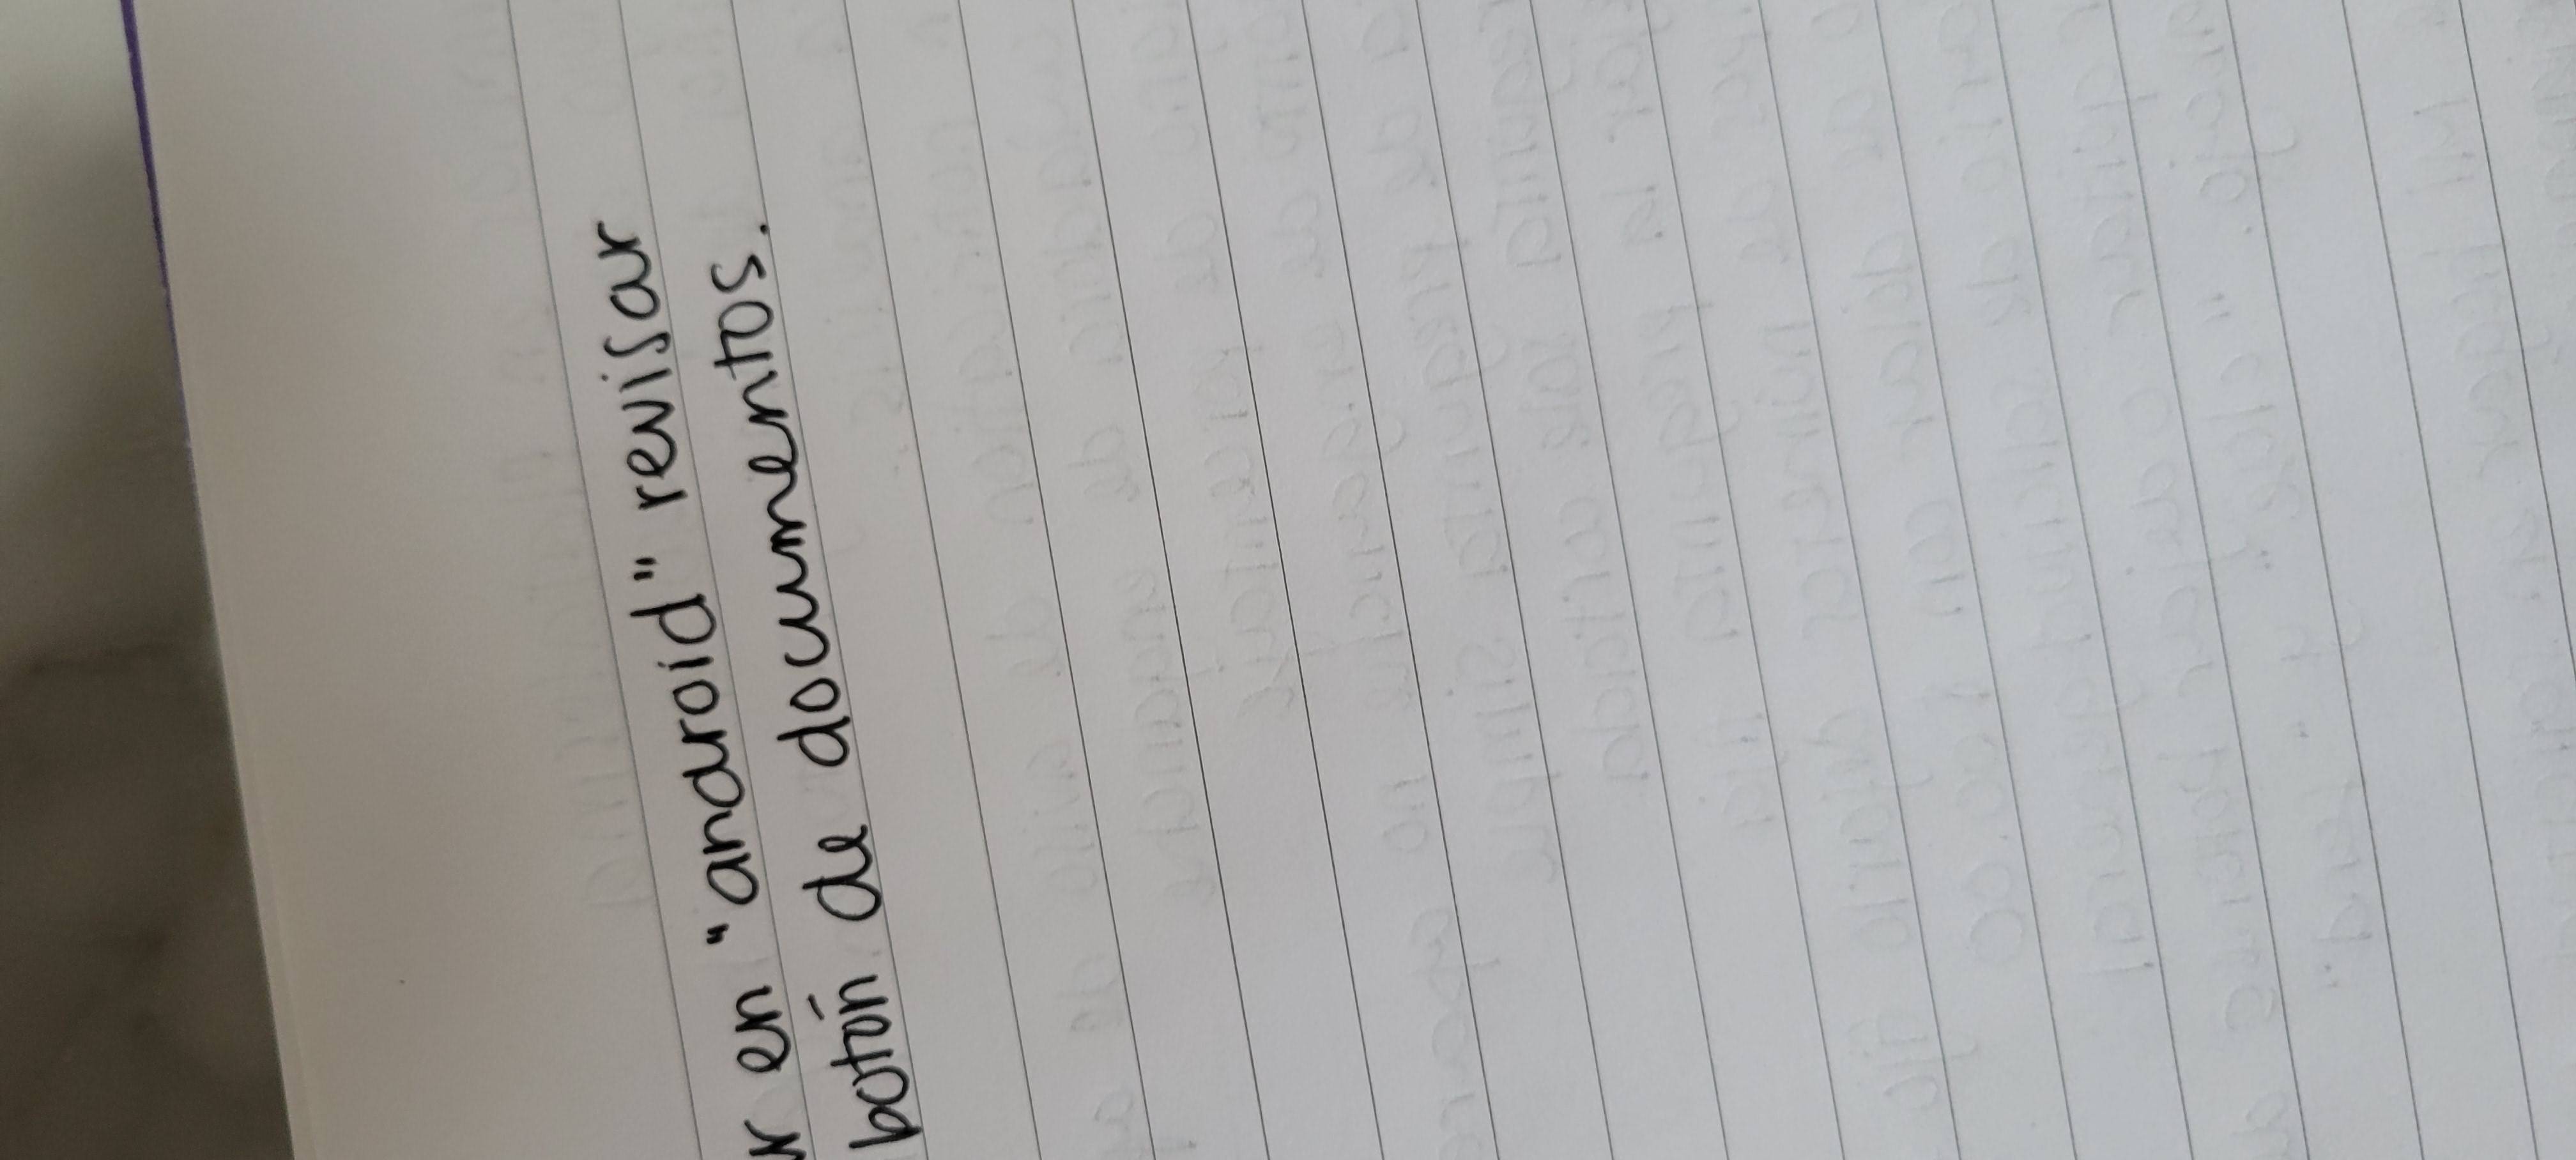 en "android" revisar
botón de documentos.